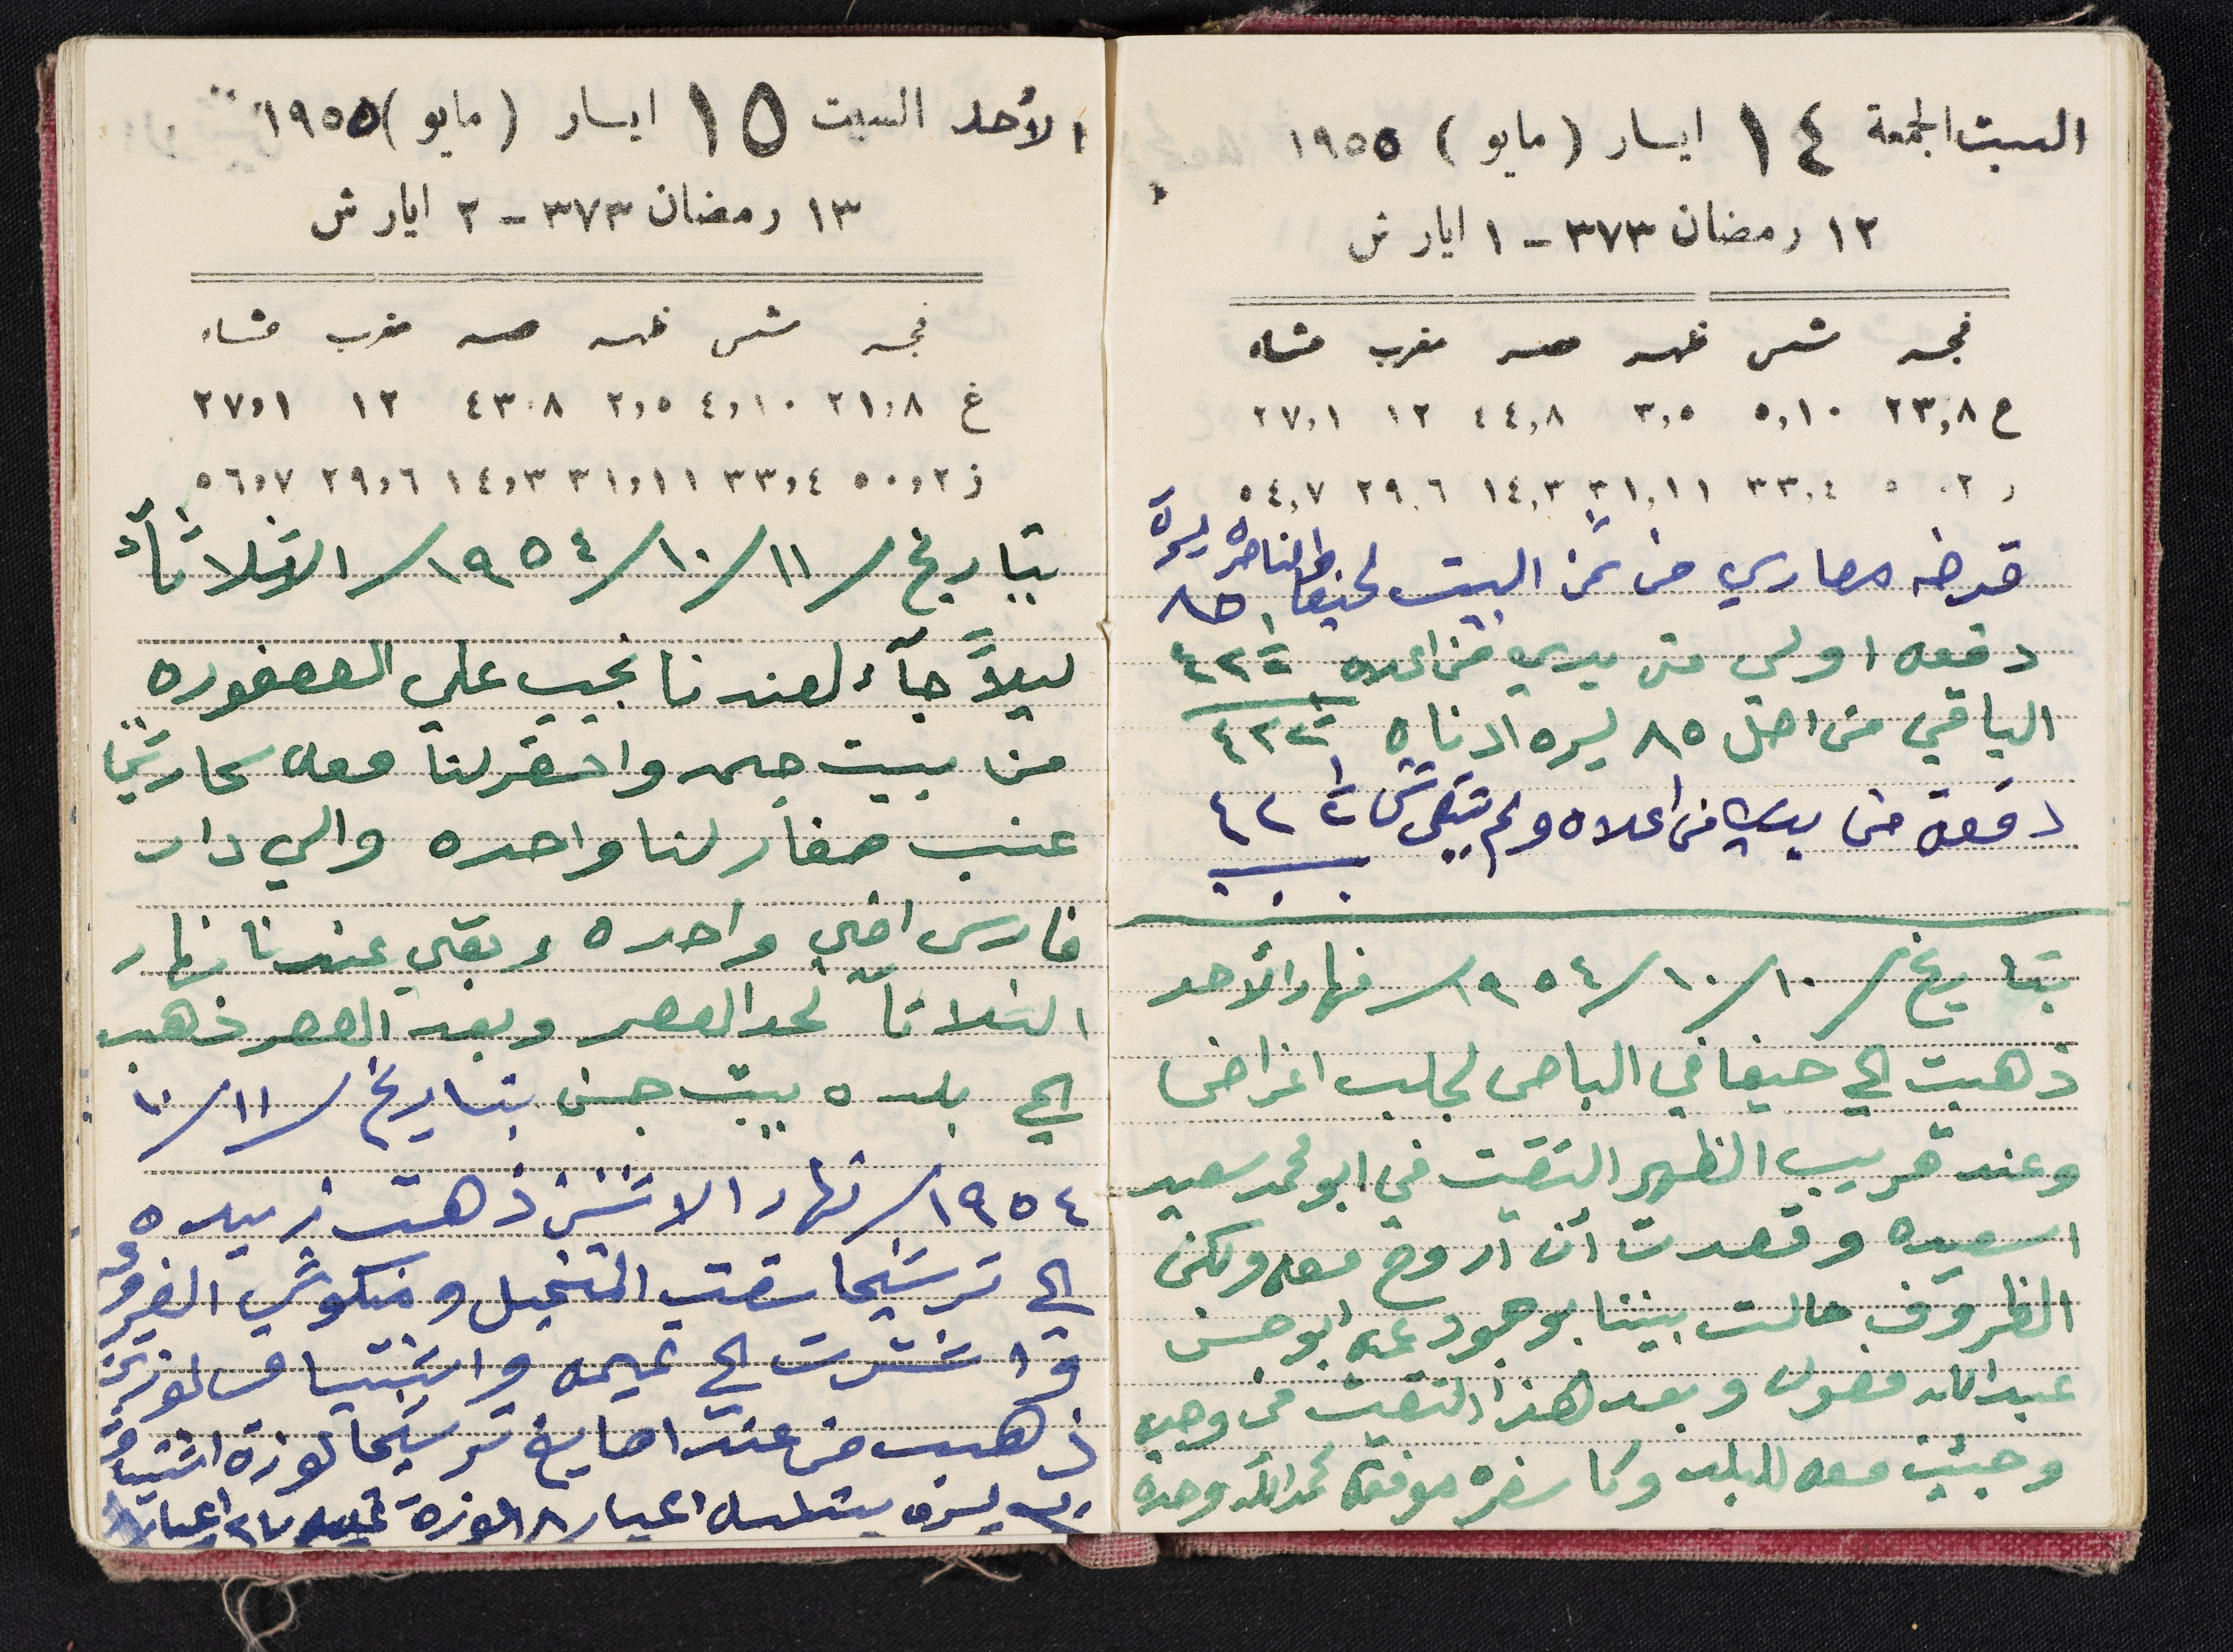 السبت الجمعة ١٤ ايار (مايو) ١٩٥٥
١٢ رمضان ٣٧٣ - ١ ايار ش
فجر شمس ظهر عصر مغرب عشاء
ع ٢٣,٨ ٥,١٠ ٣,٥ ٤٤,٨ ١٢ ٢٧,١
٣٣,٤ ٣١,١١ ١٤,٣ ٢٩,٦ ٥٤,٧
قرضه مصاري من ثمن البيت لحيفا والناصره ليرة ٨٥
دفعه اولى من يدي من اعلاه ٤٢ ١/٢
الباقي من اصل ٨٥ ليره ادناه ٤٢ ١/٢
دفعة من يدي من اعلاه ولم يتبقى ش ٤٢ ١/٢
بتاريخ /١٠/١٠/١٩٥٤/ نهار الأحد
ذهبت الى حيفا في الباص لجلب اغراض
وعند قريب الظهر التقيت في ابو محمد سعيد
اسعيده وقصدت أن اروح معه ولكن
الظروف حالت بيننا بوجود عمه ابو حسن
عبدالله وبعد هذا التقيت في وجيه
وجئت معه للبلد وكا سفره موفقه لحمد الله وحده
الأحد السبت ١٥ ايار (مايو) ١٩٥٥
١٣ رمضان ٣٧٣ - ٢ ايار ش
فجر شمس ظهر عصر مغرب عشاء
غ ٢١,٨ ٤,١٠ ٢,٥ ٤٣,٨ ١٢ ٢٧,١
ز ٥٠,٢ ٣٣,٤ ٣١,١١ ١٤,٣ ٢٩,٦ ٥٦,٧
بتاريخ /١١/١٠/١٩٥٤/ الثلاثآء
ليلاً جآء لعندنا نجيب علي العصفوره
من بيت جن واحضر لنا معه سحارتين
عنب صغار لنا واحده والى دار
فارس اخي واحده وبقي عندنا نهار
الثلاثآ لحد العصر وبعد العصر ذهب
الى بلده بيت جن بتاريخ /١١/١٠
١٩٥٤/ نهار الاثنين ذهبت زبيده
الى ترشيحا سقت المنخيل ومنكوشي الضروه
واشترت الى
ذهبت من عند ترشيحا لوزة
ليره اعيار ٨ الوزة